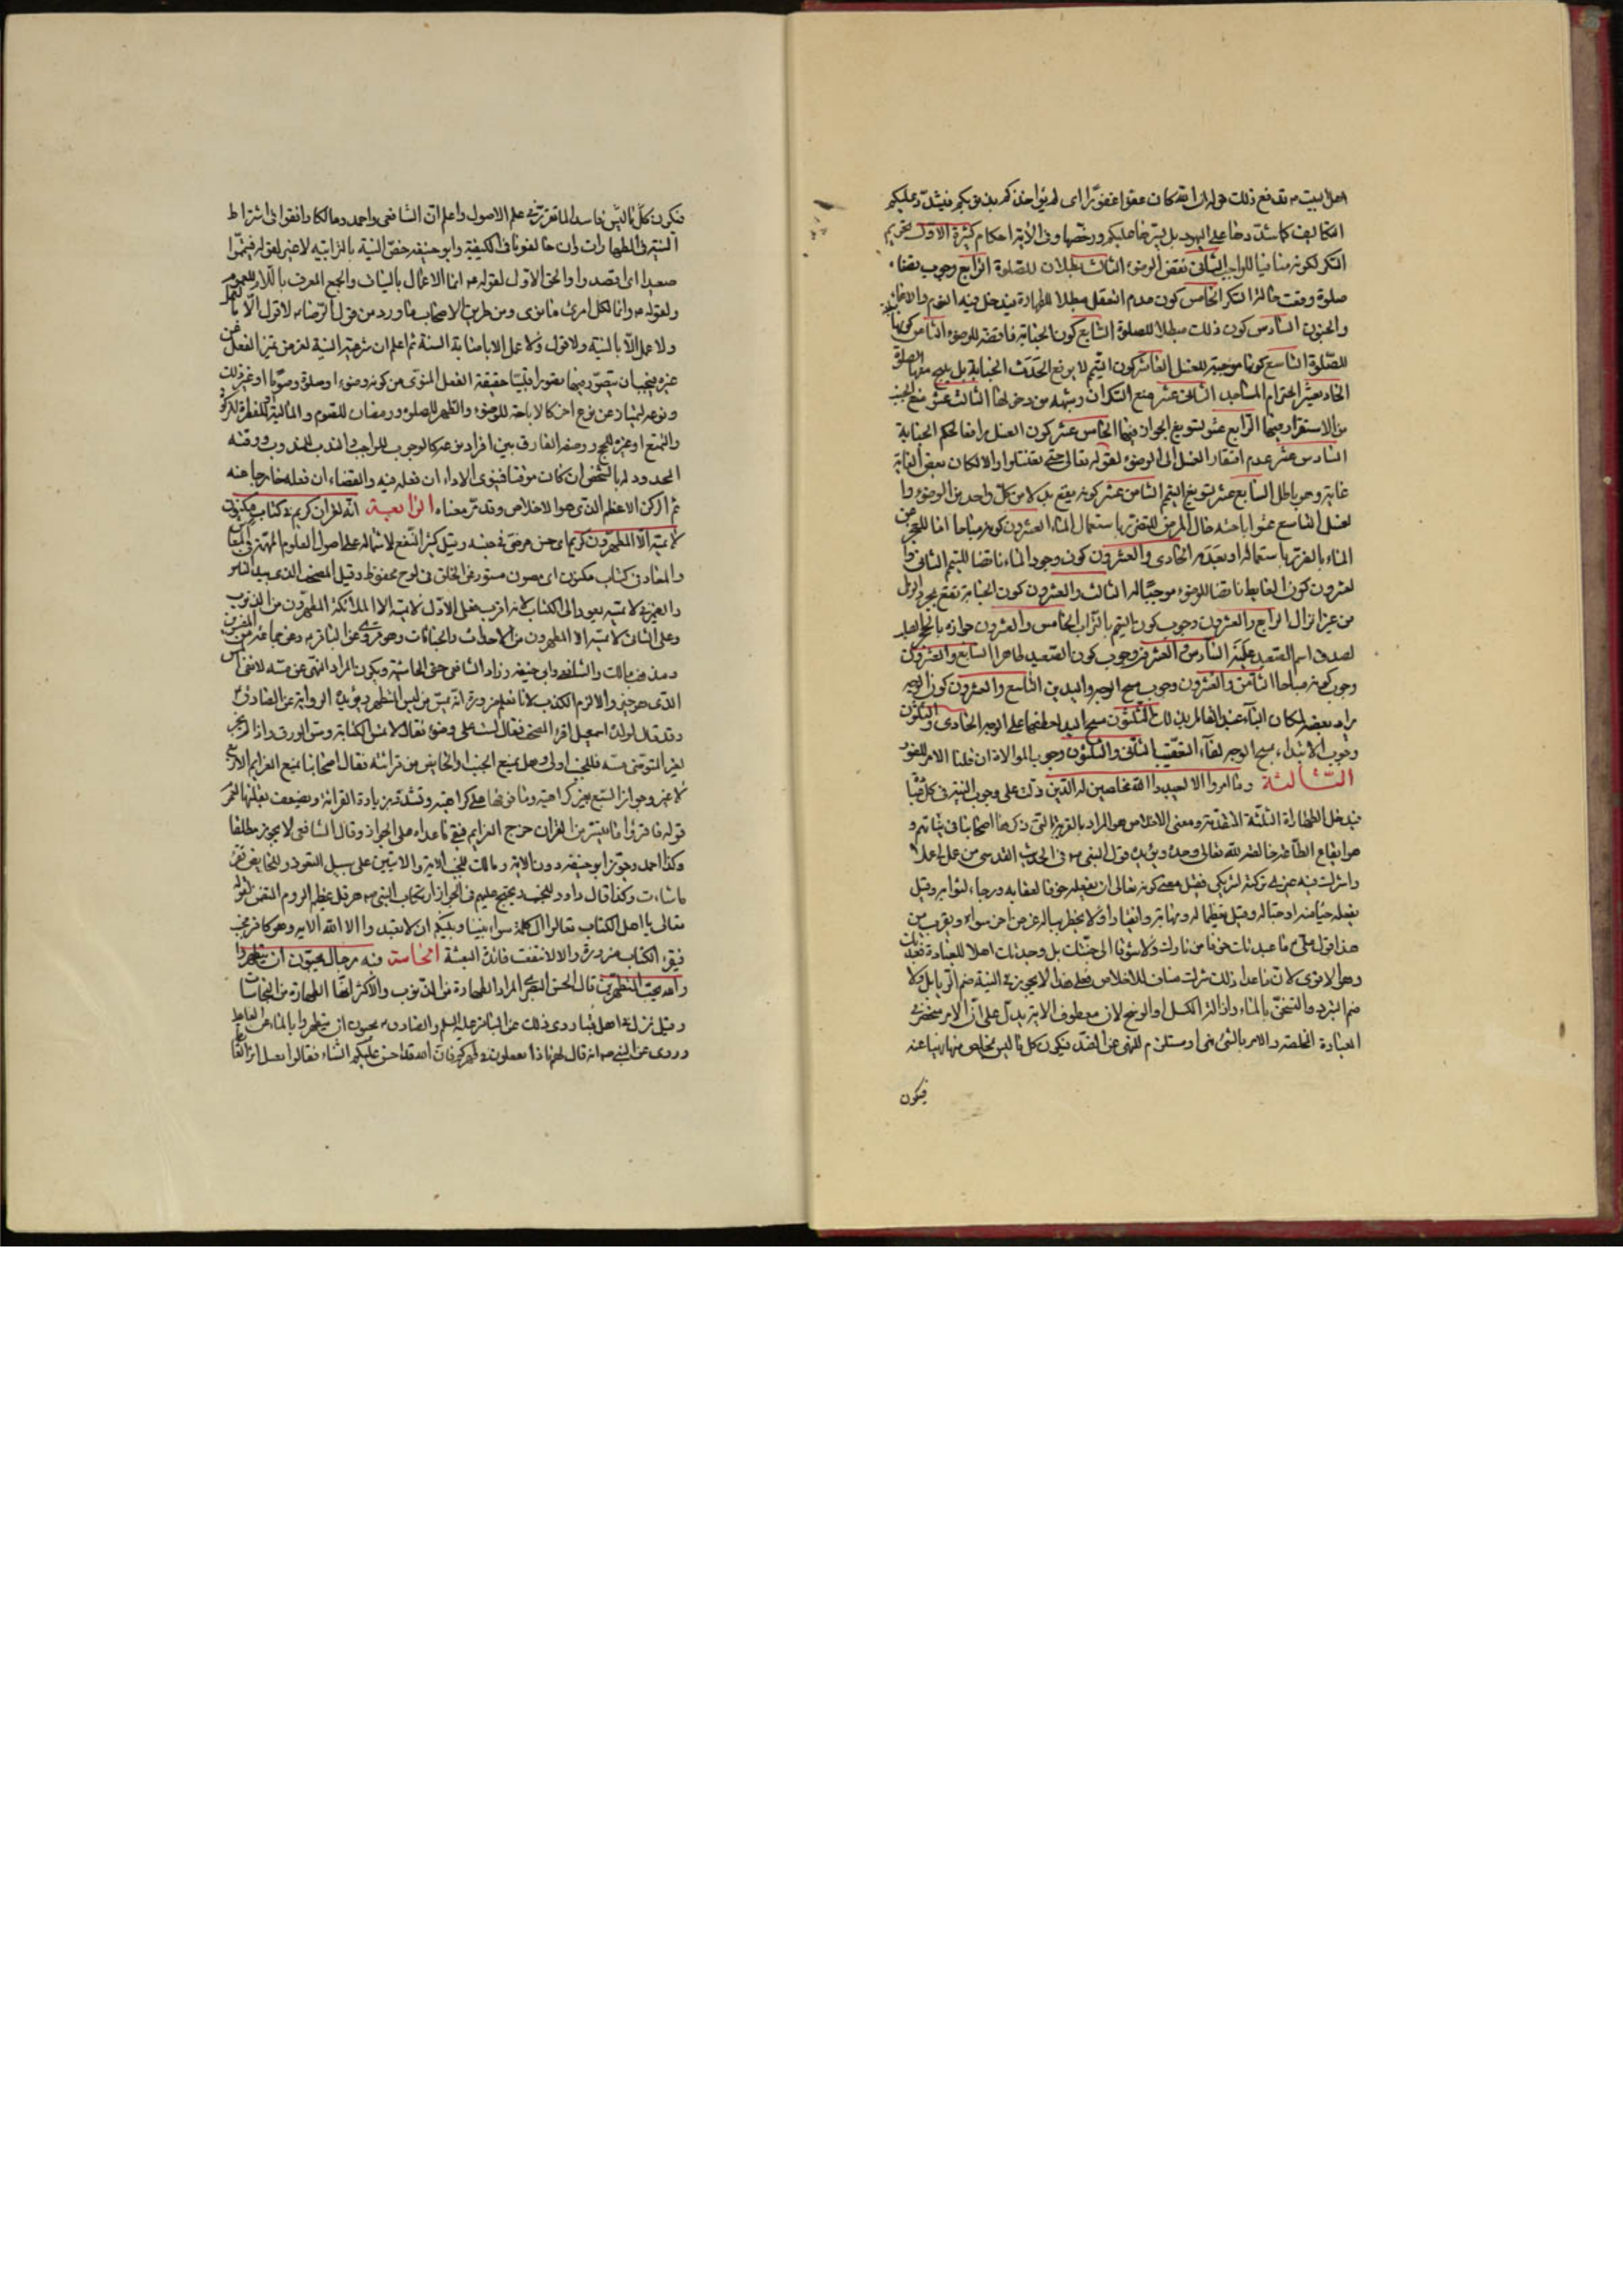 اهل البيت ع تدفع ذلك قوله ان الله كان عفوا غفورا اى لم يؤاخذكم بذنوبكم فيشدد عليكم
التكاليف كما شدّدها على اليهود بل يسّرها عليكم ورخّصها وفى الآية احكام كثيرة الاول تحريم
السكر لكونه منافيا للواجب الثانى نقض الوضوء الثالث ابطلان للصلوة الرابع وجوب قضاء
صلوة وقعت حالة السكر الخامس كون عدم التعقل مبطلا للطهارة فيدخل فيه النوم والاغماء
والجنون السادس كون ذلك مبطلا للصلوة السابع كون الجنابة ناقضة للوضوء الثامن كونها
للصلوة التاسع كونها موجبة للغسل العاشر كون التيمم لا يرفع الحدث الجنابة بل يبيح معها الصلوة
الحاديعشر احترام المساجد الثانى عشر منع السكران وشبهه من دخولها الثالث عشر منع الجنب
من الاستقرار فيها الرابع عشر تسويغ الجواز فيها الخامس عشر كون الغسل رافعا لحكم الجنابة
السادس عشر عدم افتقار الغسل الى الوضوء لقوله تعالى حتى تغتسلوا والا لكان بعض الغاية
غاية وهو باطل السابع عشر تسويغ التيمم الثامن عشر كونه يقع بدلا من كل واحد من الوضوء وا
لغسل التاسع عشر اباحته حال المرض المتضرر باستعمال الماء العشرون كونه مباحا اما للعجز عن
الماء بالضرر باستعماله او بعدمه الحادى والعشرون كون وجود الماء ناقضا للتيمم الثانى وا
لعشرون كون الغايط ناقضا للوضوء موجبا له الثالث والعشرون كون الجنابة تقع بمجرد الوطى
من غير انزال الرابع والعشرون وجوب كون التيمم بالتراب الخامس والعشرون جوازه بالحجر
لصدق اسم الصعيد عليه السادس والعشرون وجوب كون الصعيد طاهرا السابع والعشرون
وجوب كونه مباحا الثامن والعشرون وجوب مسح الوجه واليدين التاسع والعشرون كون الوجه
يراد بعضه لمكان الباء الثلثون مسح اليد لعطفها على الوجه الحادى والثلثون
وجوب الابتداء بمسح الوجه لفاء التعقيب الثانى والثلثون وجوب الموالاة ان قلنا الامر للفور
الثالثة وما امروا الا ليعبدوا الله مخلصين له الدين دلت على وجوب النية فى كل عبادة
فيدخل الطهارة الثلثة المتقدمة ومعنى الاخلاص هو المراد بالقربة التى ذكرها اصحابنا فى نياتهم و
هو ايقاع الطاعة خالصة لله تعالى وحده ويؤيده قول النبى ص فى الحديث القدسى من عمل لى عملا
واشرك فيه غيرى تركته لشريكى فقيل معنى كونه تعالى ان يفعله خوفا لعقابه ورجاء لثوابه وقيل
يفعله حياء منه او حبا له وقيل تعظيما له ومهابة وانقيادا ولا يخطر بباله غرض اخر سواه ويقرب من
هذا قول على ع ما عبدتك خوفا من نارك ولا شوقا الى جنتك بل وجدتك اهلا للعبادة فعبدتك
وهو الاقوى لان ما عدا ذلك شرك مناف للاخلاص فعلى هذا لا يجوز فى النية ضم الرياء بل ولا
ضم التبرد والتسخن بالماء وازالة الكسل او الوسخ لان معطوف الآية يدل على ان الامر منحصر فى
العبادة المخلصة والامر بالشئ نهى او مستلزم للنهى عن الضد فيكون كل ما ليس بمخلص منهيا عنه
فيكون
فيكون كل ما ليس فاسدا لما تقرر فى علم الاصول واعلم ان الشافعى واحمد ومالكا وافقوا فى اشتراط
النية فى الطهارات وان خالفونا فى الكيفية وابو حنيفة خص النية بالترابية لا غير لقوله فتيمموا
صعيدا اى اقصدوا والحق الاول لقوله ص انما الاعمال بالنيات والجمع المعرف باللام للعموم
ولقوله ص وانما لكل امرئ ما نوى ومن طريق الاصحاب ما ورد من قول الرضا ع لا قول الا بعمل
ولا عمل الا بالنية ولا قول ولا عمل الا باصابة السنة ثم اعلم ان شرعية النية لغرض تميز الفعل عن
غيره فيجب ان يتصور فيها حقيقة الفعل المنوى من كونه وضوءا وصلوة وصوما او غير ذلك
ونوعه ليمتاز عن نوع اخر كالاباحة للوضوء والظهر للصلوة ورمضان للصوم والمالية والفطرة للزكوة
والتمتع او غيره للحج ووصفه الفارق بين افراد نوعه كالوجوب للواجب والندب للمندوب ووقته
المحدود له بالشخص ان كان موقتا فينوى الاداء ان فعله فيه والقضاء ان فعله خارجا عنه
ثم الركن الاعظم الذى هو الاخلاص وقد مر معناه الرابعة انه لقران كريم فى كتاب مكنون
لا يمسه الا المطهرون كريم اى حسن مرضى فى جنسه وقيل كثير النفع لاشتماله على اصول العلوم المهمة فى المعاش
والمعاد فى كتاب مكنون اى مصون مستور عن الخلق فى لوح محفوظ وقيل المصحف الذى بيد الناس
والضمير فى لا يمسه يعود الى الكتاب لانه اقرب فعلى الاول لا يمسه الا الملائكة المطهرون من الذنوب
وعلى الثانى لا يمسه الا المطهرون من الاحداث والجنابات وهو مروى عن الباقر ع وعن جماعة من المفسرين
ومذهب مالك والشافعى وابى حنيفة وزاد الشافعى حتى الحاشية ويكون المراد النهى عن مسه لا نفى المس
الذى هو خبر والا لزم الكذب لانا نعلم ضرورة انه يمسه من ليس بمتطهر ويؤيده الرواية عن الصادق ع
وقد قال لولده اسمعيل اقرء المصحف فقال لست على وضوء فقال لا تمس الكتابة ومس الورق واذا لم يجز
لغير المتوضى مسه فللجنب اولى وهل يمنع الجنب والحايض من قرائته فقال اصحابنا بمنع العزايم الاربع
لا غير وجواز السبع بغير كراهية وما فوقها على كراهية وتشتد بزيادة القرائة
قوله فاقرؤا ما تيسر من القرآن خرج العزايم فبقى ما عداه على الجواز وقال الشافعى لا يجوز مطلقا
وكذا احمد وجوز ابو حنيفة دون الآية ومالك للجنب الآية والايتين على سبيل التعوذ وللحايض تقرء
ما شاءت وكذا قال داود للجنب ويحتج عليهم فى الجواز ان كتاب النبى ص هرقل عظيم الروم المتضمن لقوله
تعالى يا اهل الكتاب تعالوا الى كلمة سواء بيننا وبينكم ان لا نعبد الا الله الآية وهو كافر جنب
فيقرء الكتاب ضرورة والا لانتفت فائدة البعثة الخامسة فيه رجال يحبون ان يتطهروا
والله يحب المتطهرين قال الحسن البصرى المراد الطهارة من الذنوب والاكثر انها الطهارة من النجاسات
وقيل نزلت فى اهل قبا وروى ذلك عن الباقر عليه السلم والصادق ع يحبون ان يتطهروا بالماء عن الغايط
وروى عن النبى ص انه قال لهم ماذا تفعلون فى طهركم فان الله قد احسن عليكم الثناء فقالوا نغسل اثر الغايط